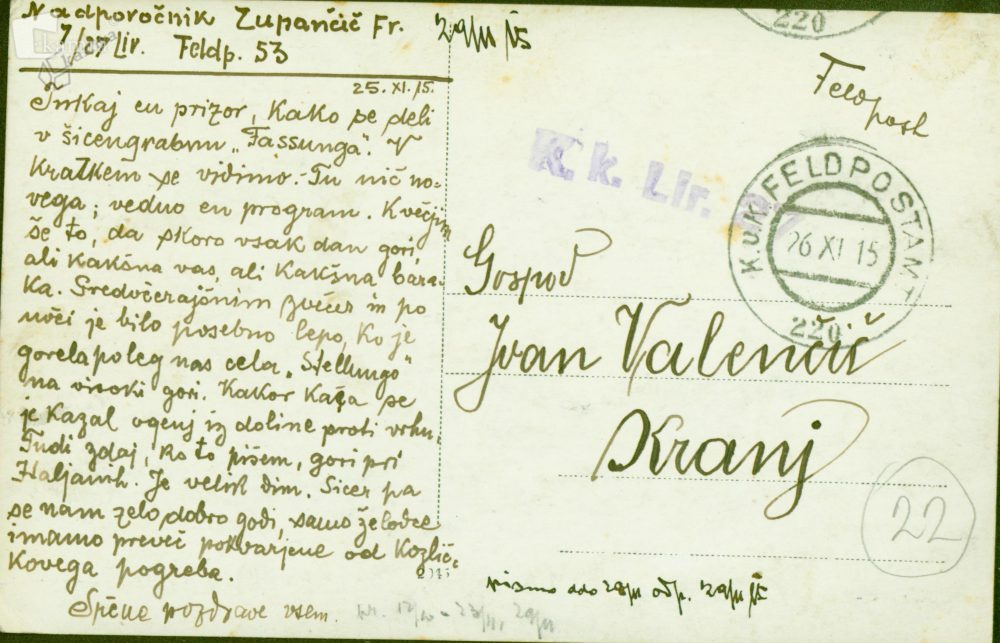 Nadporočnik Zupančič Fr.
7/27 Lir. Feldp. 53
29/11 15
25. XI. 15.
Tukaj en prizor, kako se deli
v šicengrabnu „Fassunga“. V
kratkem se vidimo. Tu nič no=
vega; vedno en program. Kvečjem
še to, da skoro vsak dan gori,
ali kakšna vas, ali kakšna bara-
ka. Predvčerajšnim zvečer in po
noči je bilo posebno lepo, ko je
gorela poleg nas cela „Stellungo“
na visoki gori. Kakor kača se
je kazal ogenj iz doline proti vrhu.
Tudi zdaj, ko to pišem, gori pri
Haljanih. Je velik dim. Sicer pa
se nam zelo dobro godi, samo želodce
imamo preveč pokvarjene od Kozlič=
kovega pogreba.
Srčne pozdrave vsem.
220
Feldpost
K. k. Lir. 27
K.u.K. FELDPOSTAMT
26 XI 15
220
Gospod
Ivan Valenčič
Kranj
22
pismo 29/11 15